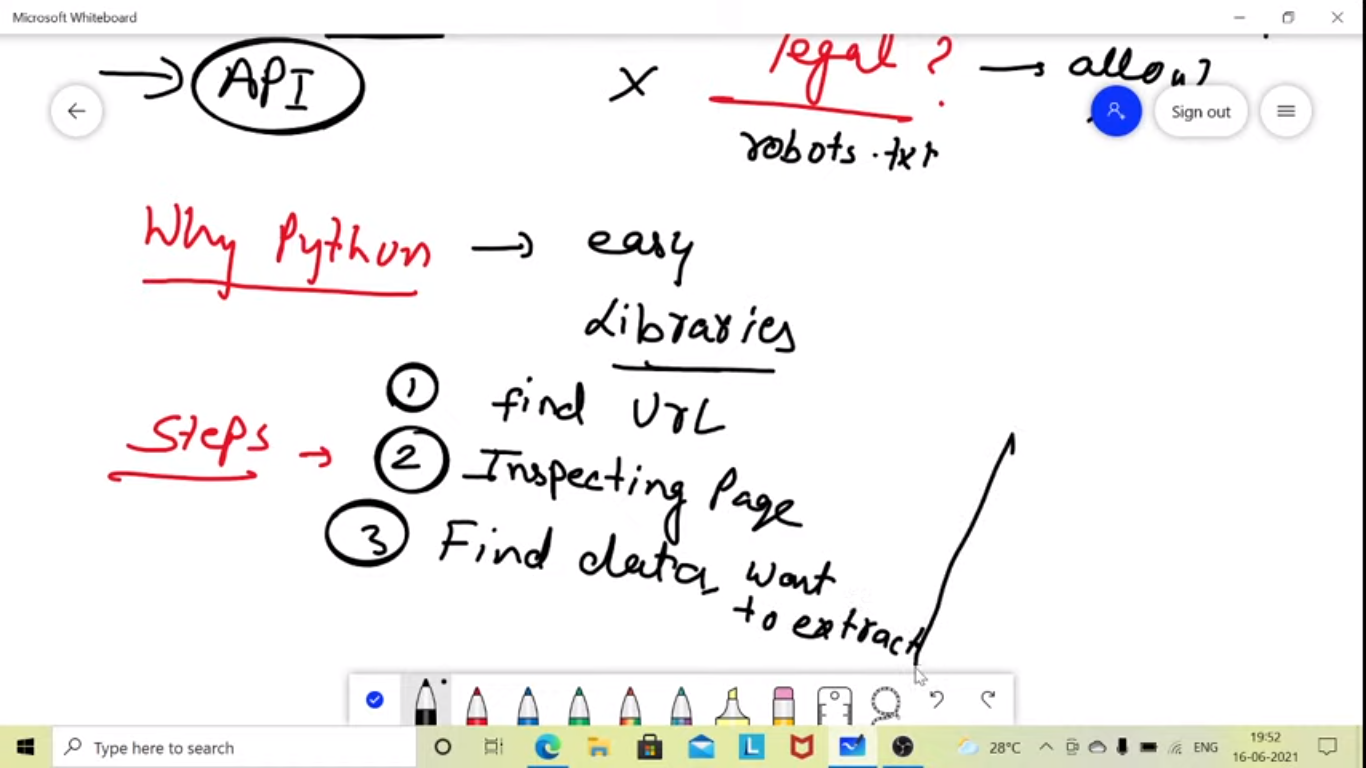 Microsoft Whiteboard
→ API
X legal ? → allow?
Sign out
robots.txt
Why Python → easy
Libraries
Steps →
1 find UrL
2 Inspecting Page
3 Find data want
to extract
Type here to search
28°C
ENG
19:52
16-06-2021